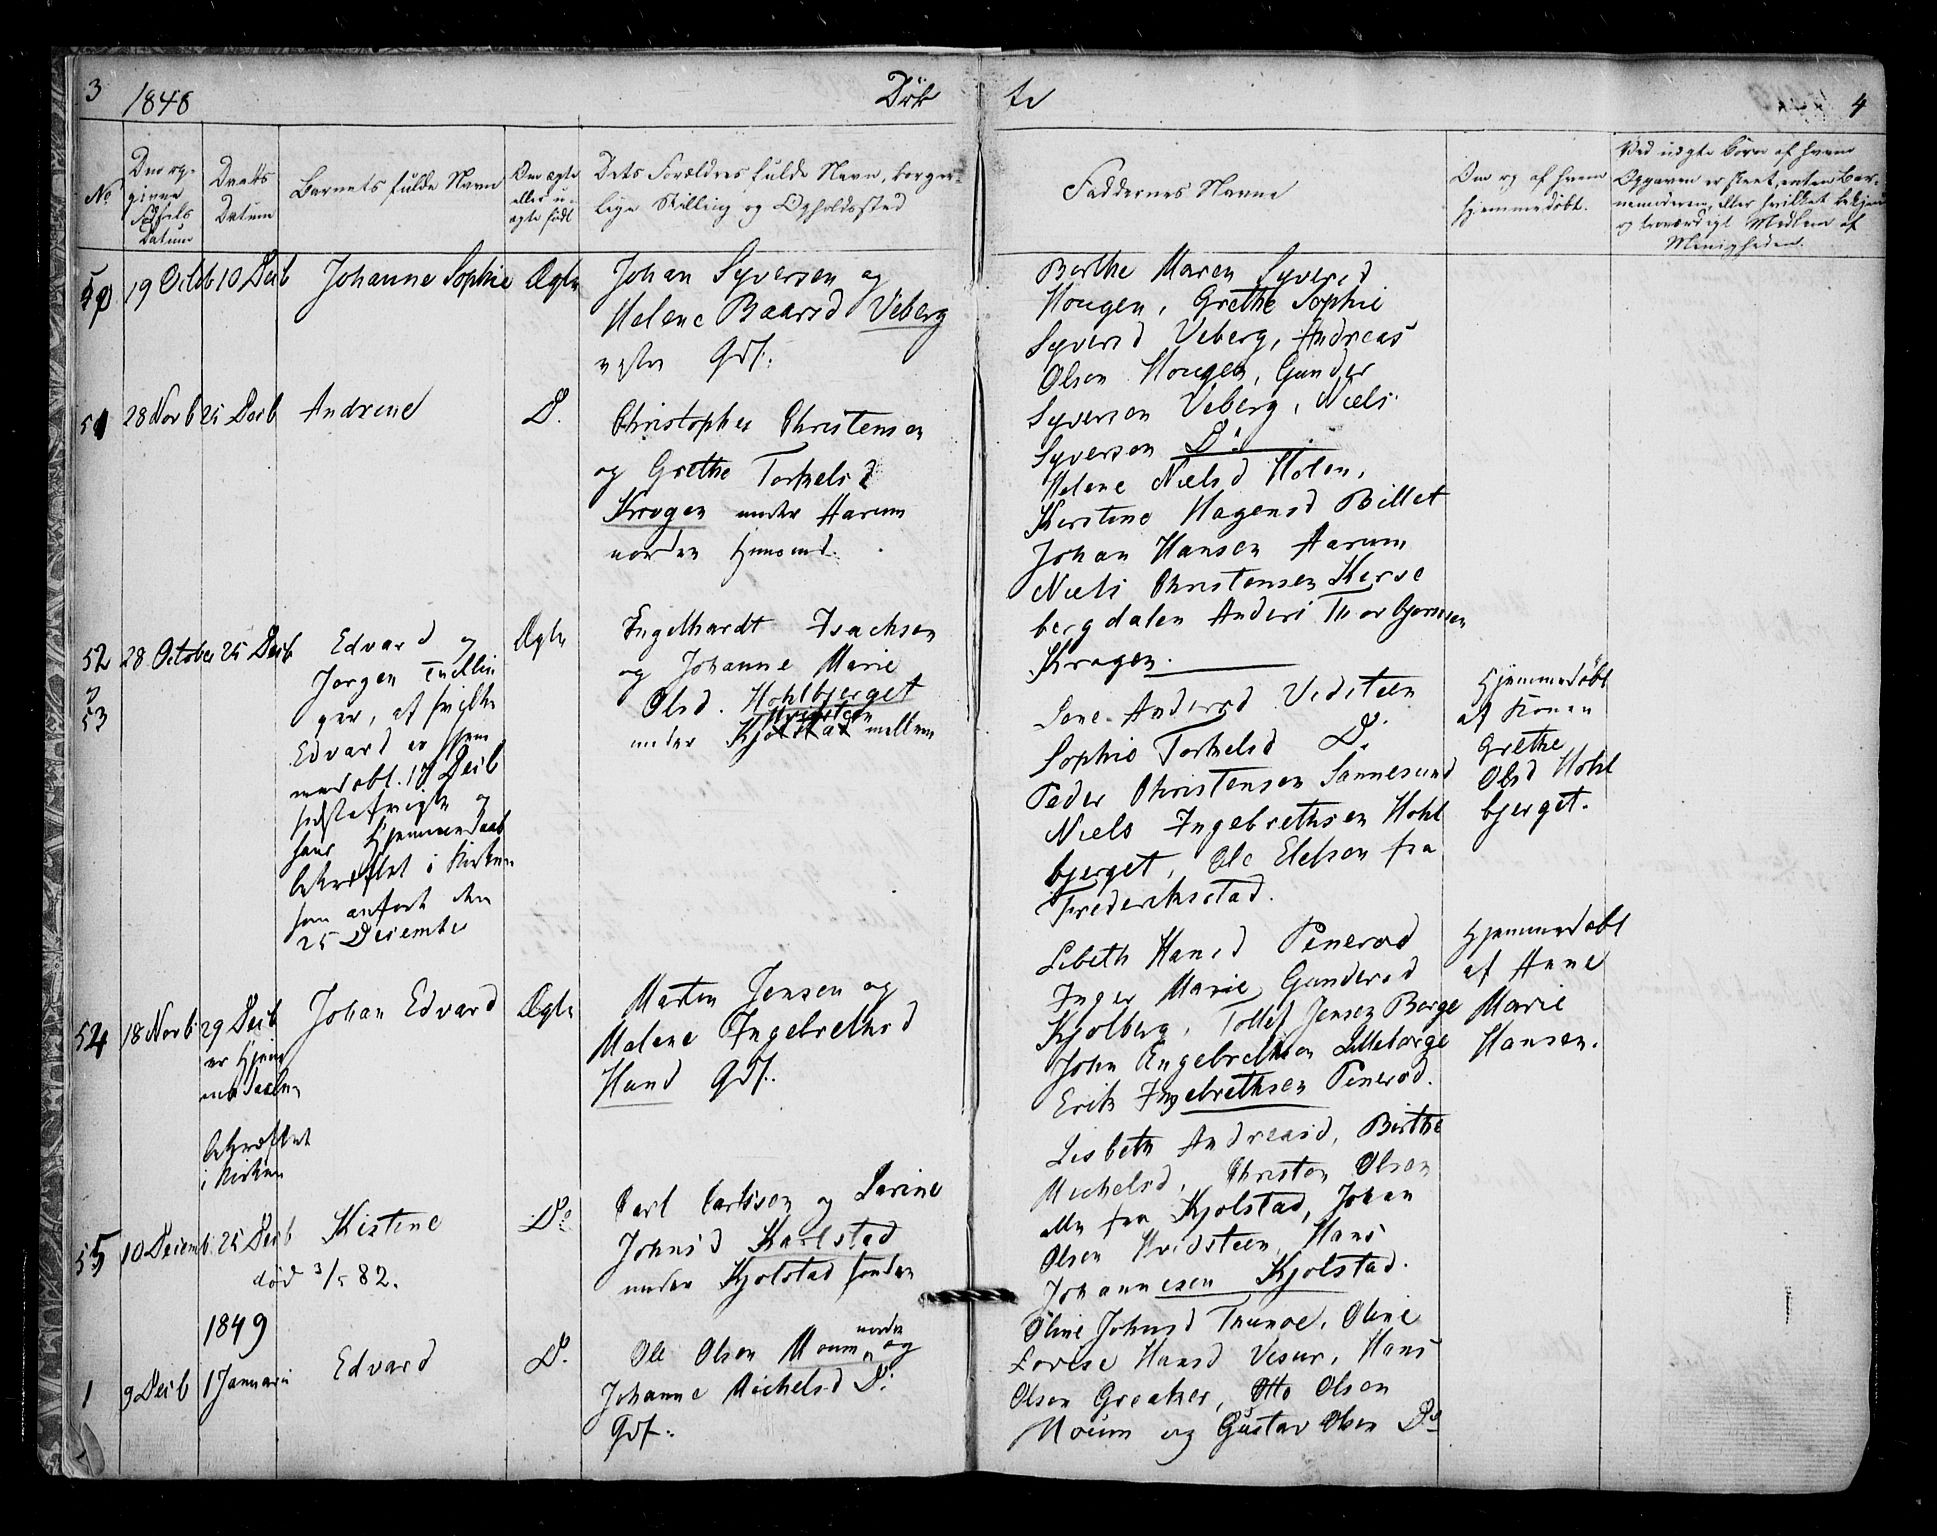 3 1848 Döb
te 4
No
Den op-
givne
Fødsels
Datum
Daabs
Datum
Barnets fulde Navn
Om ægte
eller u-
ægte født
Dets Forældres fulde Navn, borger-
lige Stilling og Opholdssted
Faddernes Navne
Om og af hvem
hjemmedøbt.
Ved uægte Børn af hvem
Opgaven er skeet, enten Bar-
nemoderen, eller hvilket bekjendt
og troværdigt Medlem af
Menigheden.
50
19 Octob
10 Decb
Johanne Sophie
Ægte
Johan Syversen og
Helene Baarsd Veberg
vestre Gdf.
Berthe Maren Syversd
Hougen, Grethe Sophie
Syversd Veberg, Andreas
Olsen Hougen, Gunder
Syversen Veberg, Niels
Syversen Do
51
28 Novb
25 Decb
Andrine
D.
Christopher Christensen
og Grethe Torkelsd
Krogen under Aarum
nordre Huusmd.
Helene Nielsd Holen,
Kerstine Hagensd Billet
Johan Hansen Aarum
Niels Christensen Kirke
bergdalen Anders Thorbjørnsen
Krogen.
52
og
53
28 October
25 Decb
Edvard og
Jørgen Tvillin
ger, af hvilke
Edvard er hjem
medøbt 17 Decb
sidstafvigte og
hans Hjemmedaab
bekræftet i Kirken
som anført den
25 Decembe
Ægte
Engelhardt Isachsen
og Johanne Marie
Olsd. Hohlbjerget
under Kjølstad mellem
Hvidsteen
Lene Andersd Vidsteen
Sophie Torkelsd D.
Peder Christensen Sannesund
Niels Ingebrethsen Hohl
bjerget, Ole Elefsen fra
Frederikstad.
Hjemmedøbt
af Konen
Grethe
Olsd Hohl
bjerget.
54
18 Novb
29 Decb
er Hjem
medaaben
bekræftet
i Kirken
Johan Edvard
Ægte
Morten Jensen og
Malene Ingebrethsd
Hund Gdf.
Lisbeth Hansd Penerød
Inger Marie Gundersd
Kjølberg, Tollef Jensen Borge
John Engebrethsen Lilleborge
Erik Ingebrethsen Penerød.
Hjemmedøbt
af Anne
Marie
Hansen.
55
10 Decemb.
25 Decb
Kistine
død 3/5 82.
Do
Carl Carlsson og Larine
Johnsd Karlstad
under Kjølstad søndre
Lisbeth Andreasd, Birthe
Michelsd, Christen Olsen
alle fra Kjølstad, Johan
Olsen Hvidsteen, Hans
Johannesen Kjølstad.
1849
1
9 Decb
1 Januari
Edvard
D.
Ole Olsen Moum nordre og
Johanne Michelsd D:
Gdf.
Oline Johnsd Thunøe, Oline
Lovise Hansd Visur, Hans
Olsen Greaker, Otto Olsen
Moum og Gustav Olsen Do